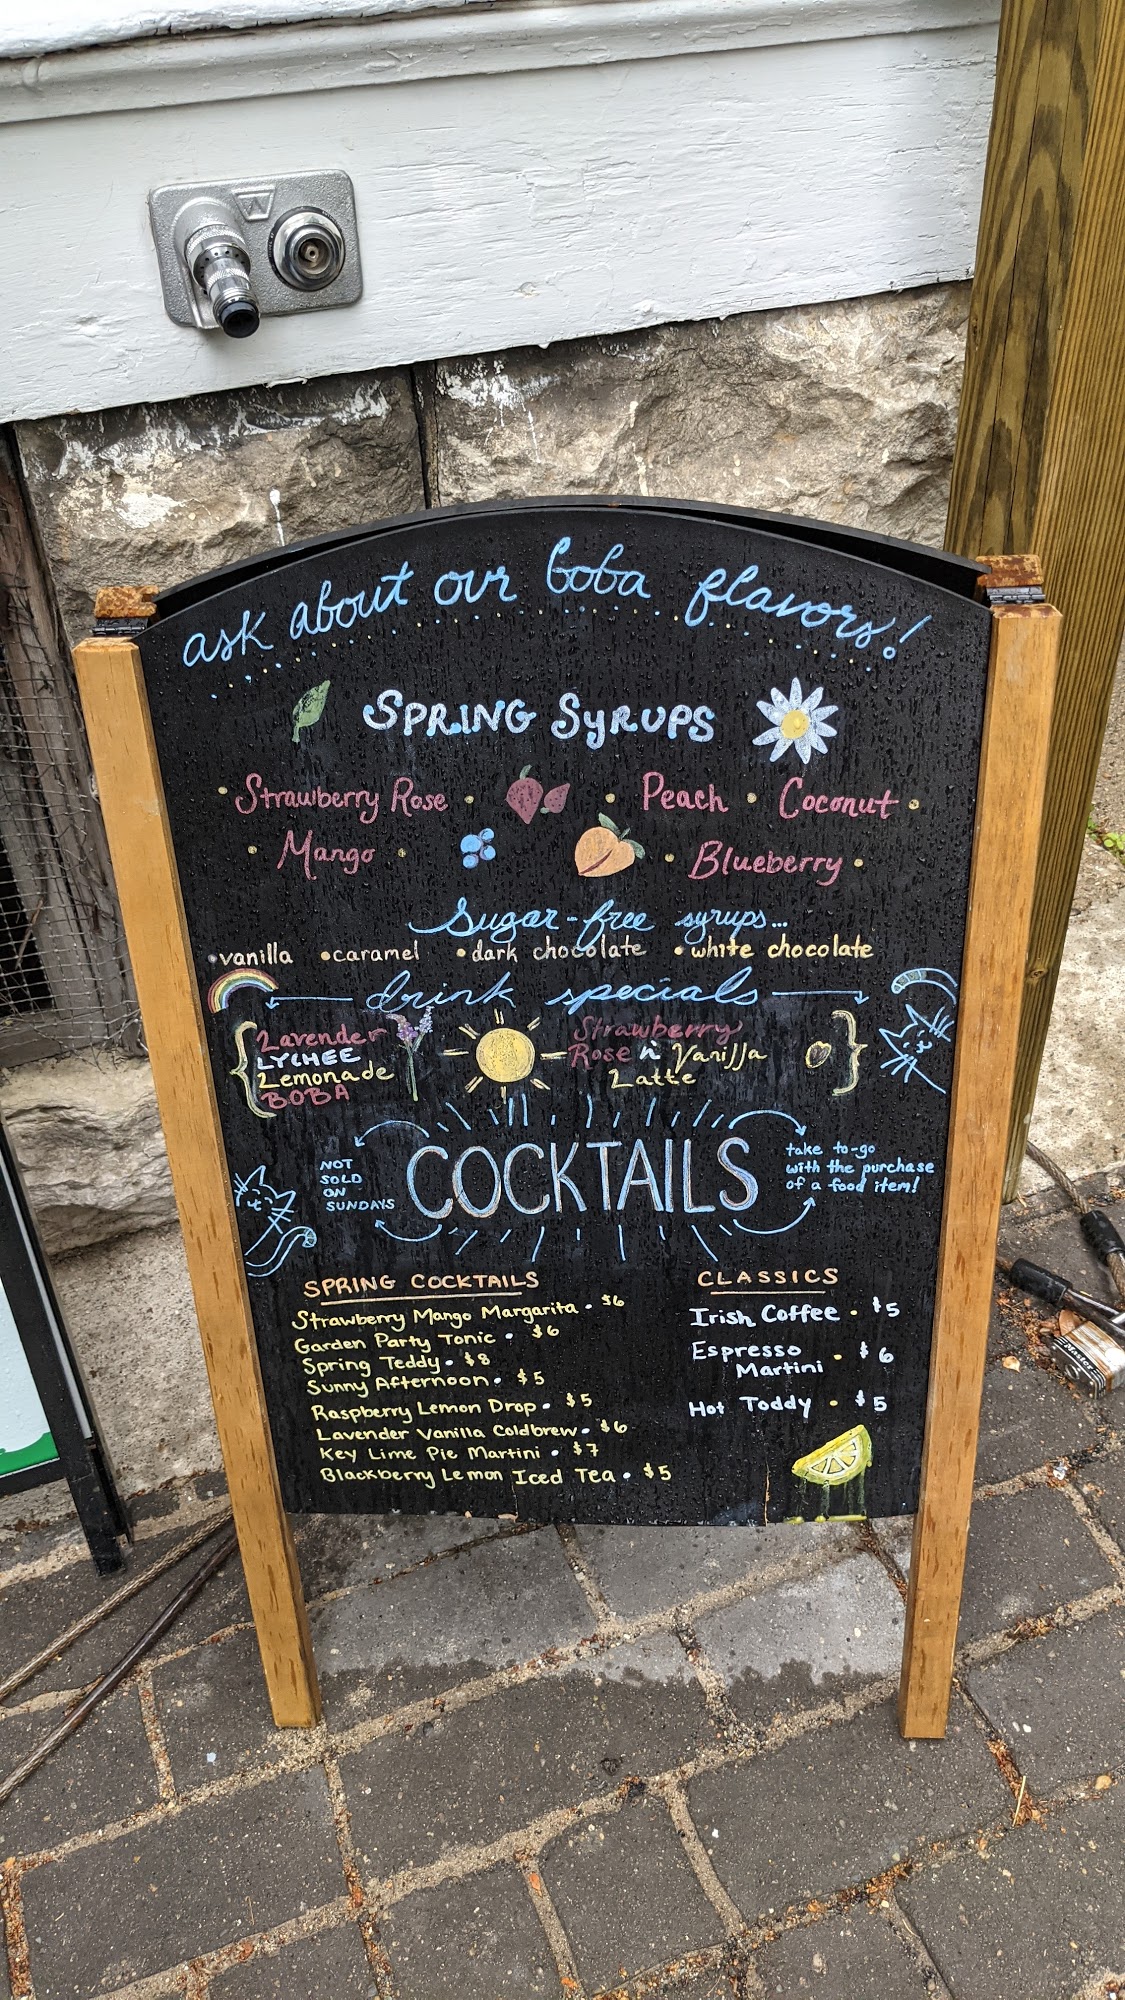 ask about our boba flavors!
SPRING SYRUPS
• Strawberry Rose • • Peach • Coconut •
• Mango • • Blueberry •
Sugar-free syrups...
•vanilla •caramel •dark chocolate •white chocolate
drink specials
Lavender
LYCHEE
Lemonade
BOBA
Strawberry
Rose n' Vanilla
Latte
NOT
SOLD
ON
SUNDAYS
COCKTAILS
take to-go
with the purchase
of a food item!
SPRING COCKTAILS
Strawberry Mango Margarita • $6
Garden Party Tonic • $6
Spring Teddy • $8
Sunny Afternoon • $5
Raspberry Lemon Drop • $5
Lavender Vanilla Coldbrew • $6
Key Lime Pie Martini • $7
Blackberry Lemon Iced Tea • $5
CLASSICS
Irish Coffee • $5
Espresso
Martini • $6
Hot Toddy • $5
Master